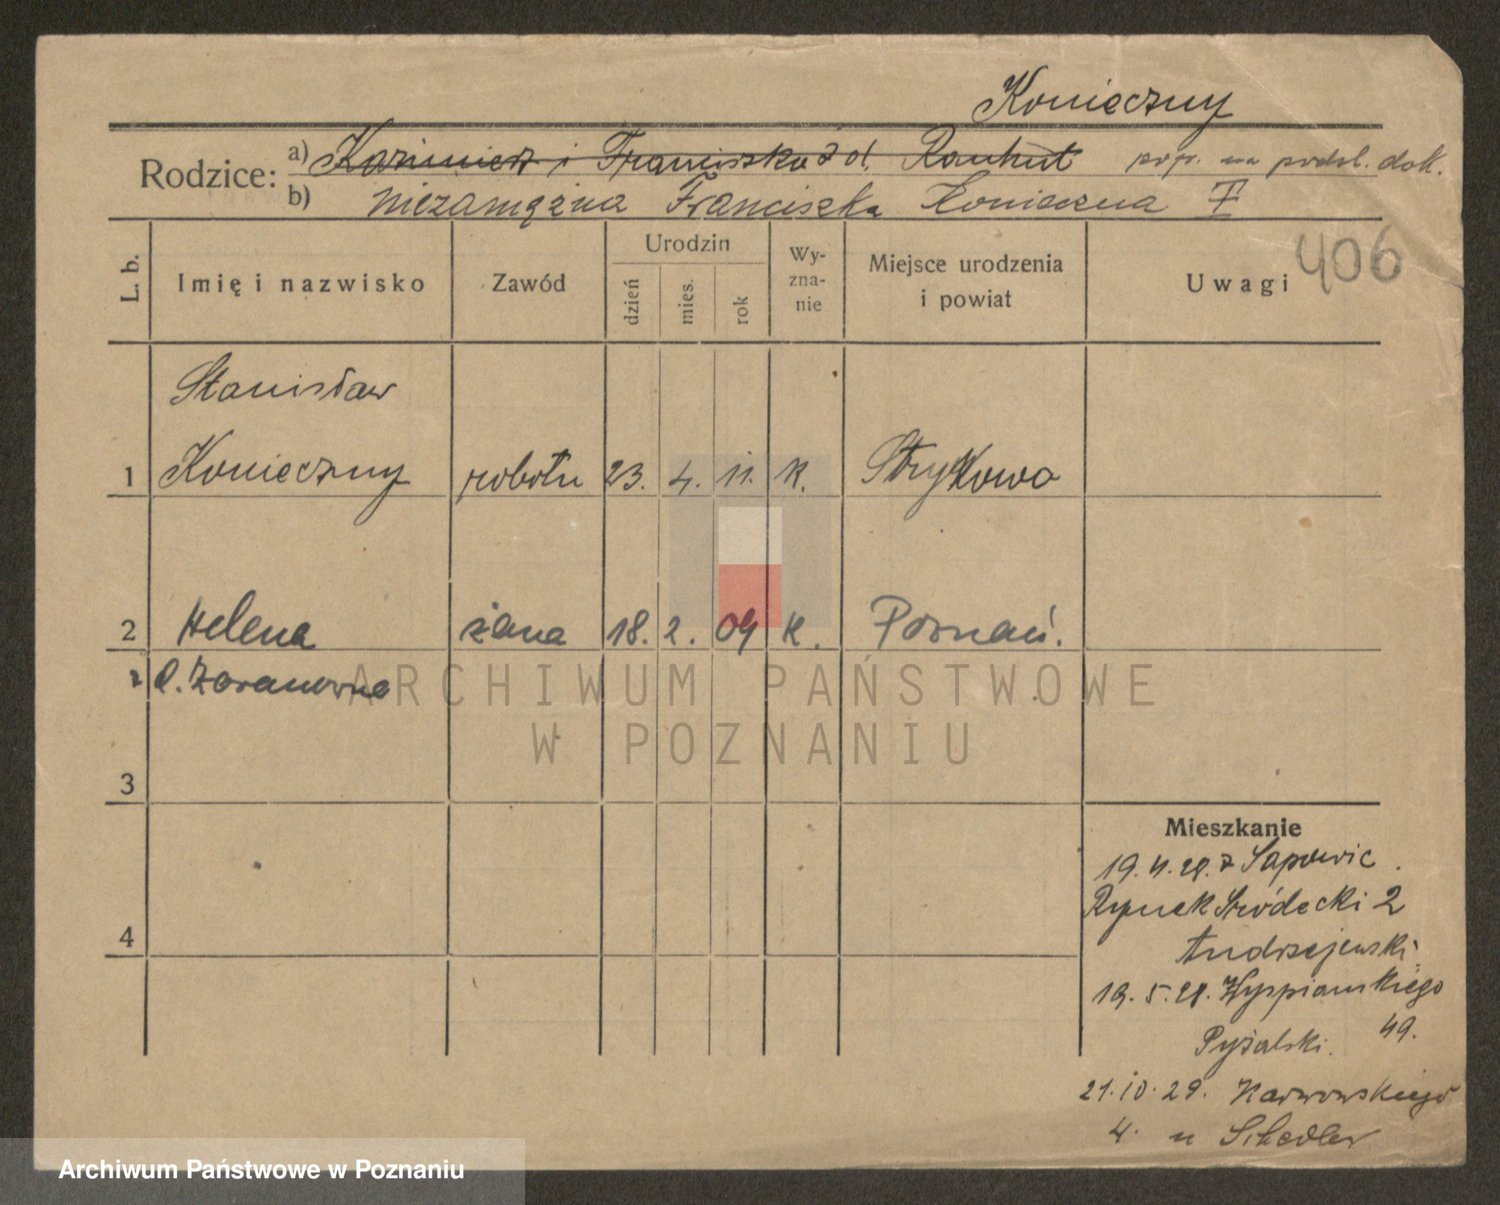 Konieczny
Rodzice:
a) Kazimierz i Franciszka z d. Rankut popr. na podst. dok.
b) niezamężna Franciszka Konieczna
406
L. b.
Imię i nazwisko
Zawód
Urodzin
dzień
mies.
rok
Wy-
zna-
nie
Miejsce urodzenia
i powiat
Uwagi
Stanisław
1 Konieczny robotn 23. 4. 11. K. Strykowo
2 Helena żona 18. 2. 09 K. Poznań.
3
4
Mieszkanie
19.4.28. z Sapowic
Rynek Śródecki 2
Andrzejewski
19.5.28. Wyspiańskiego
49.
Pyżalski.
21.10.29. Karwowskiego
4. u
ARCHIWUM PAŃSTWOWE
W POZNANIU
Archiwum Państwowe w Poznaniu